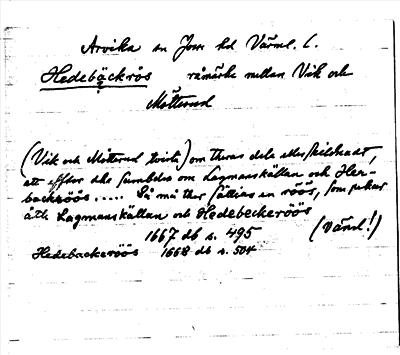 Arvika sn Jösse hd Värml. l.
Hedebäckrös råmärke mellan Vik och
Mötterud
(Vik och Mötterud tvista) om theras dele eller skildnadt,
att effter the sambdes om Lagmanskällan och Hee-
backröös ..... Så må ther sättias en röös, som pekar
åth Lagmanskällan och Hedebeckeröös
1667 db s. 495 (Värml!)
Hedebackeröös 1668 db s. 504